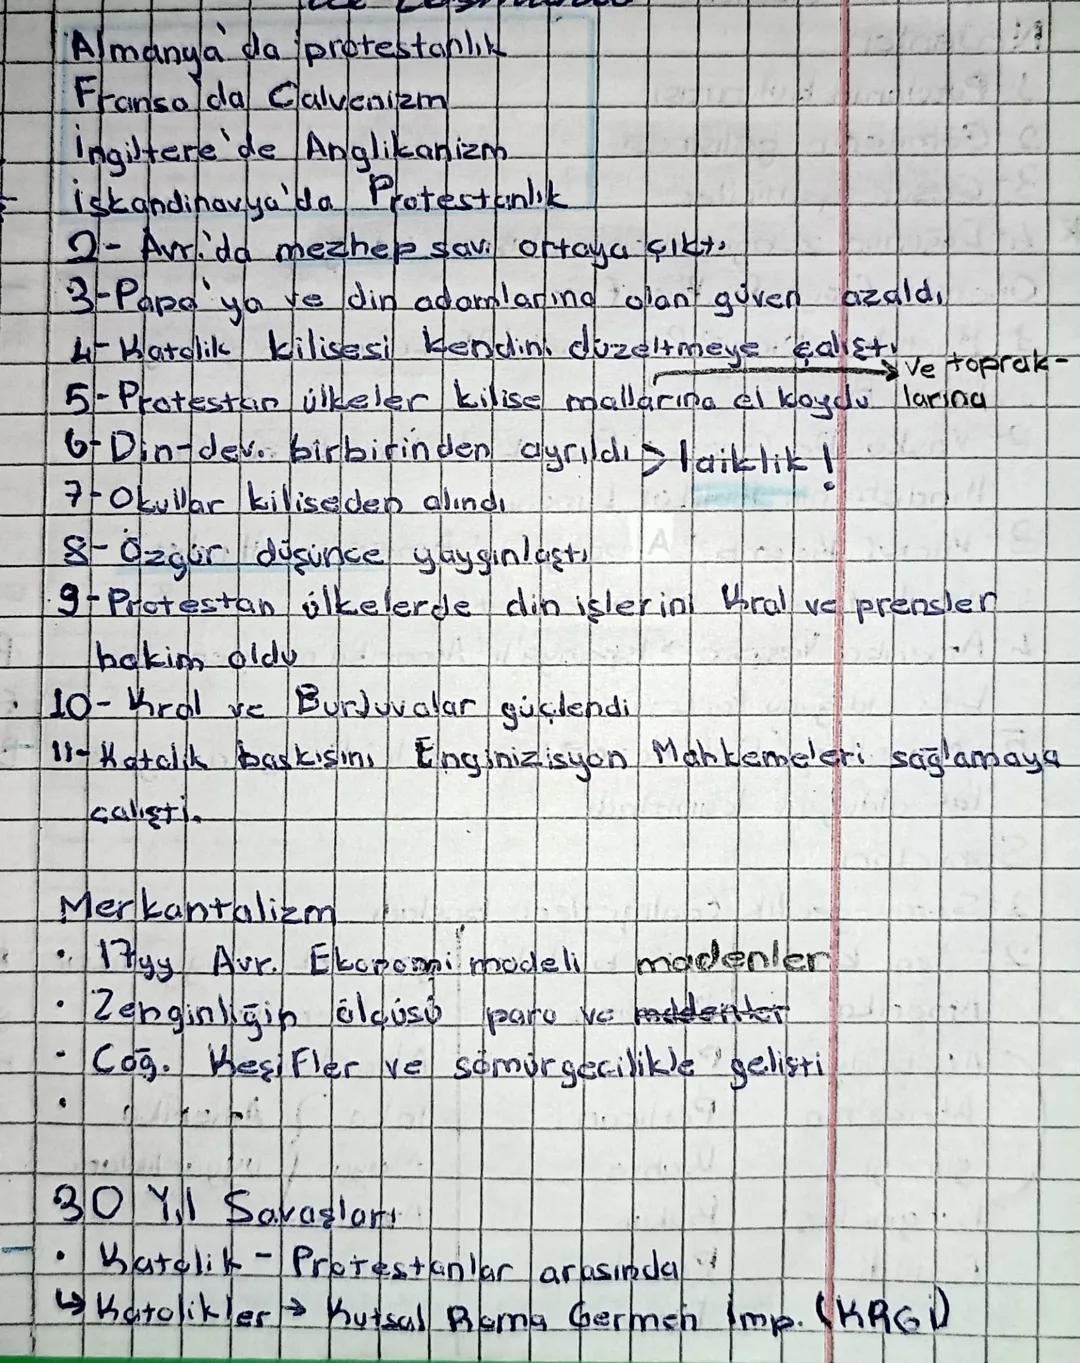 Almanya'da protestanlık
Fransa'da Calvenizm
İngiltere'de Anglikanizm
İskandinavya'da Protestanlık
2- Avr.'da mezhep sav. ortaya çıktı
3- Papa'ya ve din adamlarına olan güven azaldı
4- Katolik kilisesi kendini düzeltmeye çalıştı
ve toprak-
5- Protestan ülkeler kilise mallarına el koydu larına
6- Din-dev. birbirinden ayrıldı > laiklik !
7- Okullar kiliseden alındı
8- Özgür düşünce yaygınlaştı
9- Protestan ülkelerde din işlerini Kral ve prensler
hakim oldu
10- Kral ve Burjuvalar güçlendi
11- Katolik baskısını Enginizisyon Mahkemeleri sağlamaya
çalıştı.
Merkantalizm
• 17yy Avr. Ekonomi modeli madenler
• Zenginliğin ölçüsü para ve
• Coğ. Keşifler ve sömürgecilikle gelişti
•
30 Yıl Savaşları
• Katolik - Protestanlar arasında
↳ Katolikler → Kutsal Roma Germen İmp. (KRGİ)